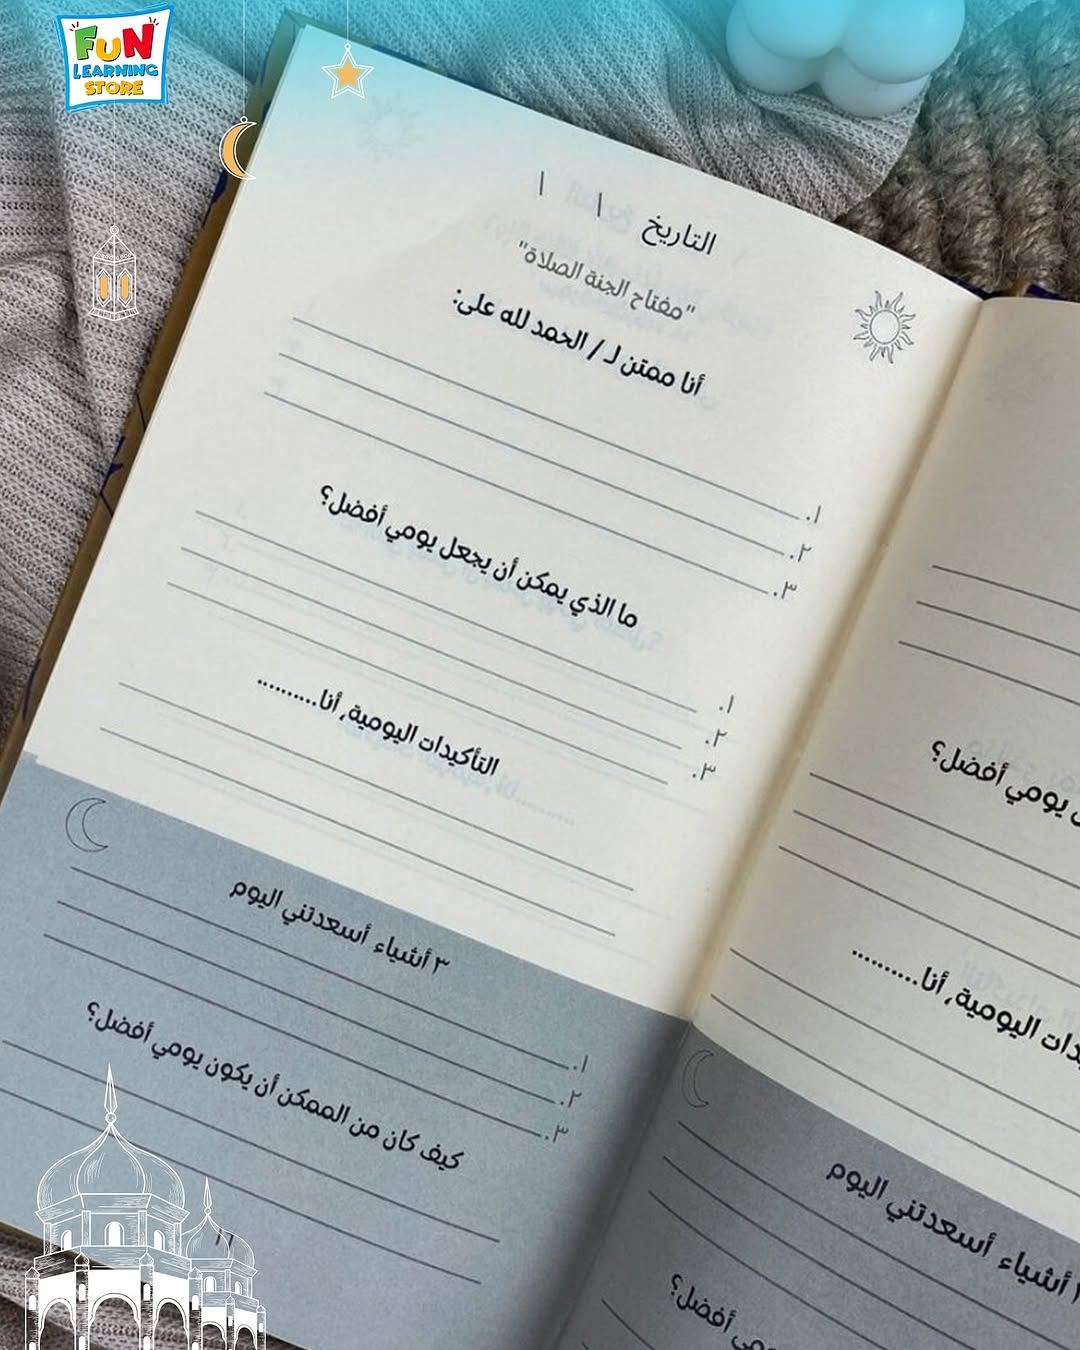 FUN
LEARNING
STORE
التاريخ / /
"مفتاح الجنة الصلاة"
أنا ممتن لـ / الحمد لله على:
١.
٢.
٣.
ما الذي يمكن أن يجعل يومي أفضل؟
١.
٢.
٣.
التأكيدات اليومية, أنا..........
٣ أشياء أسعدتني اليوم
١.
٢.
٣.
كيف كان من الممكن أن يكون يومي أفضل؟
١١
يومي أفضل؟
اليومية, أنا..........
أشياء أسعدتني اليوم
أفضل؟